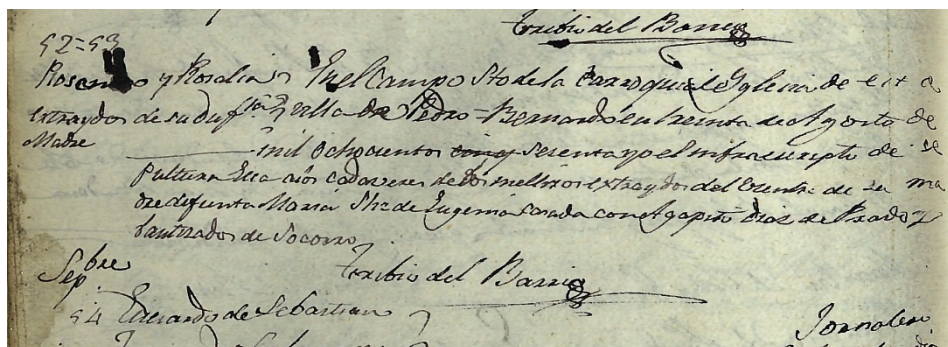 Toribio del Barrio
52=53
Rosendo y Rosalia En el Campo Sto de la Parroquial Yglesia de esta
extraydos de su dif.ta Villa de Pedro-Bernardo en treinta de Agosto de
Madre mil ochocientos sesenta yo el infraescripto di se
pultura Ecca a los cadaveres de dos mellizos extraydos del vientre de su ma
dre difunta Maria Shz de Eugenia casada con Agapito Diaz de Prado y
bautizados de Socorro
Toribio del Barrio
Sep.bre
54 Eduardo de Sebastian
Jornalero